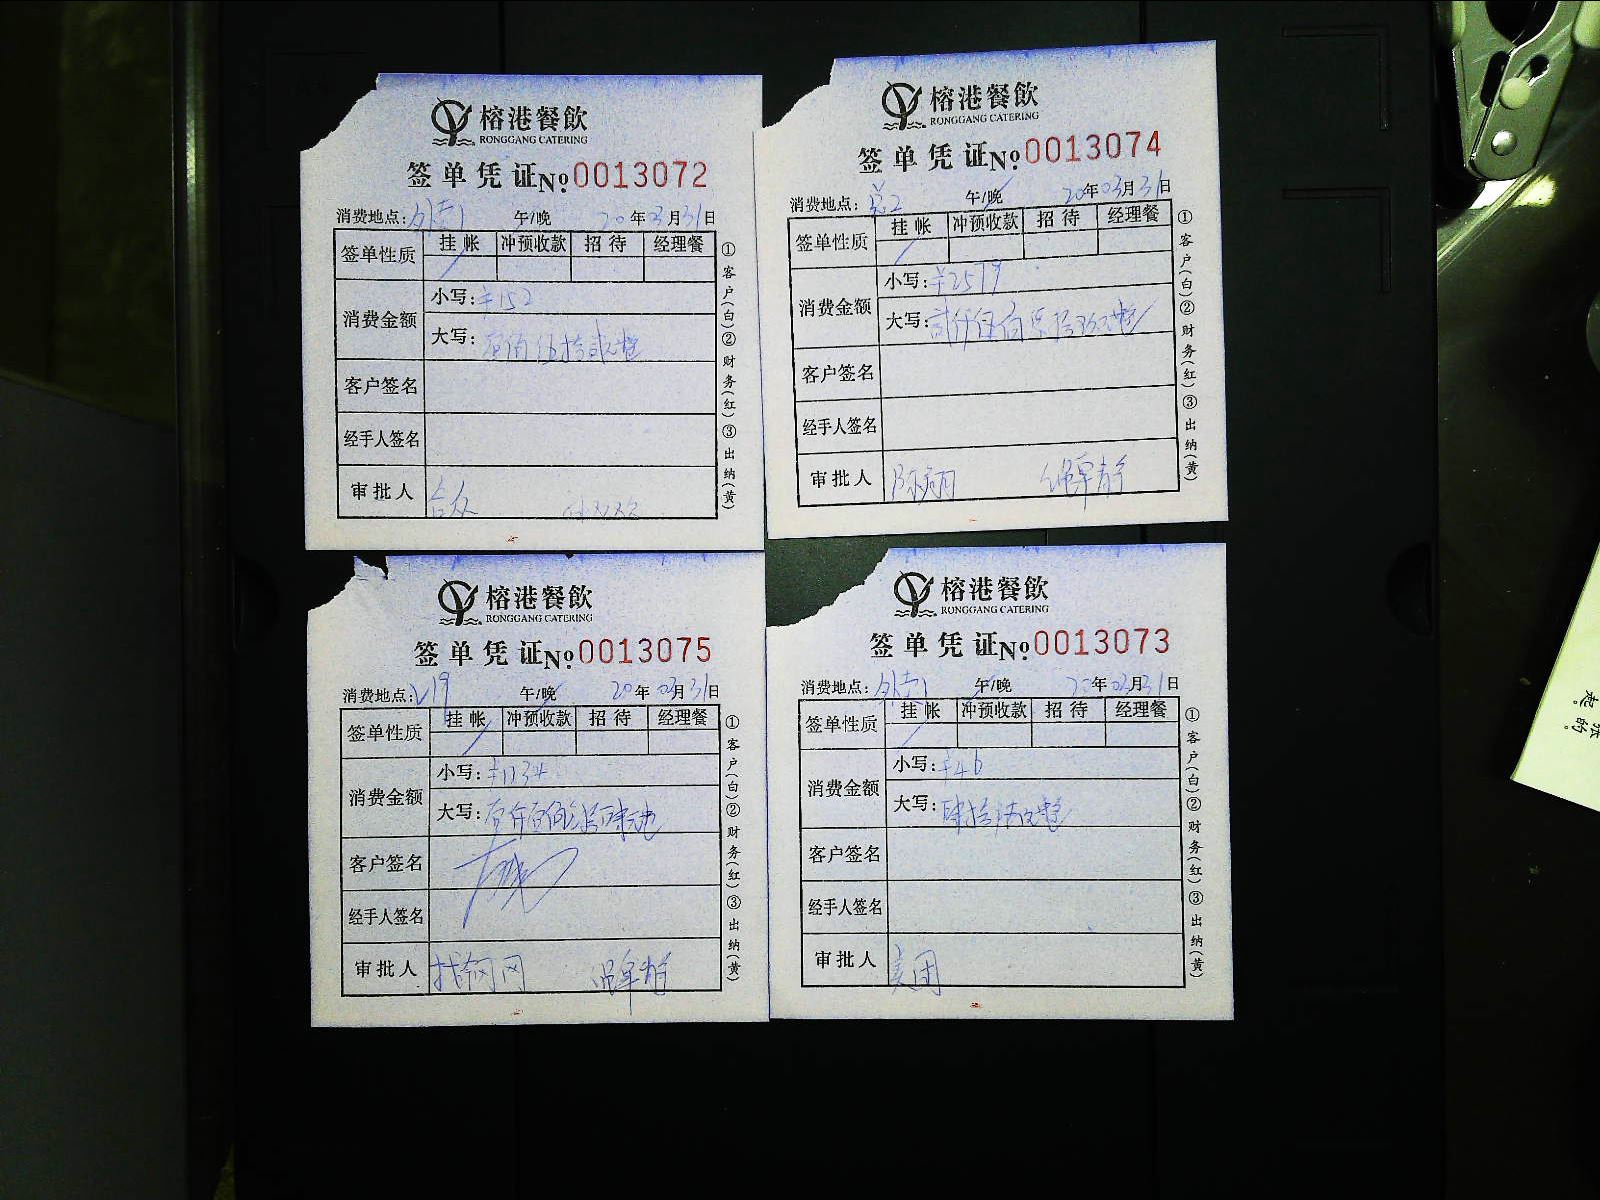 榕港餐飲
RONGGANG CATERING
签单凭证No.0013072
消费地点:外卖1 午/晚 20年03月31日
签单性质 挂帐 冲预收款 招待 经理餐
消费金额 小写:¥152
大写:壹佰伍拾贰元整
客户签名
经手人签名
审批人
①客户(白)②财务(红)③出纳(黄)
榕港餐飲
RONGGANG CATERING
签单凭证No.0013074
消费地点: 午/晚 20年03月31日
签单性质 挂帐 冲预收款 招待 经理餐
消费金额 小写:¥2579
大写:贰仟伍佰柒拾玖元整
客户签名
经手人签名
审批人 陈翔
①客户(白)②财务(红)③出纳(黄)
榕港餐飲
RONGGANG CATERING
签单凭证No.0013075
消费地点:V19 午/晚 20年03月31日
签单性质 挂帐 冲预收款 招待 经理餐
消费金额 小写:¥1134
大写:
客户签名
经手人签名
审批人 找钢网
①客户(白)②财务(红)③出纳(黄)
榕港餐飲
RONGGANG CATERING
签单凭证No.0013073
消费地点:外卖1 午/晚 20年03月31日
签单性质 挂帐 冲预收款 招待 经理餐
消费金额 小写:¥46
大写:肆拾陆元整
客户签名
经手人签名
审批人 美团
①客户(白)②财务(红)③出纳(黄)